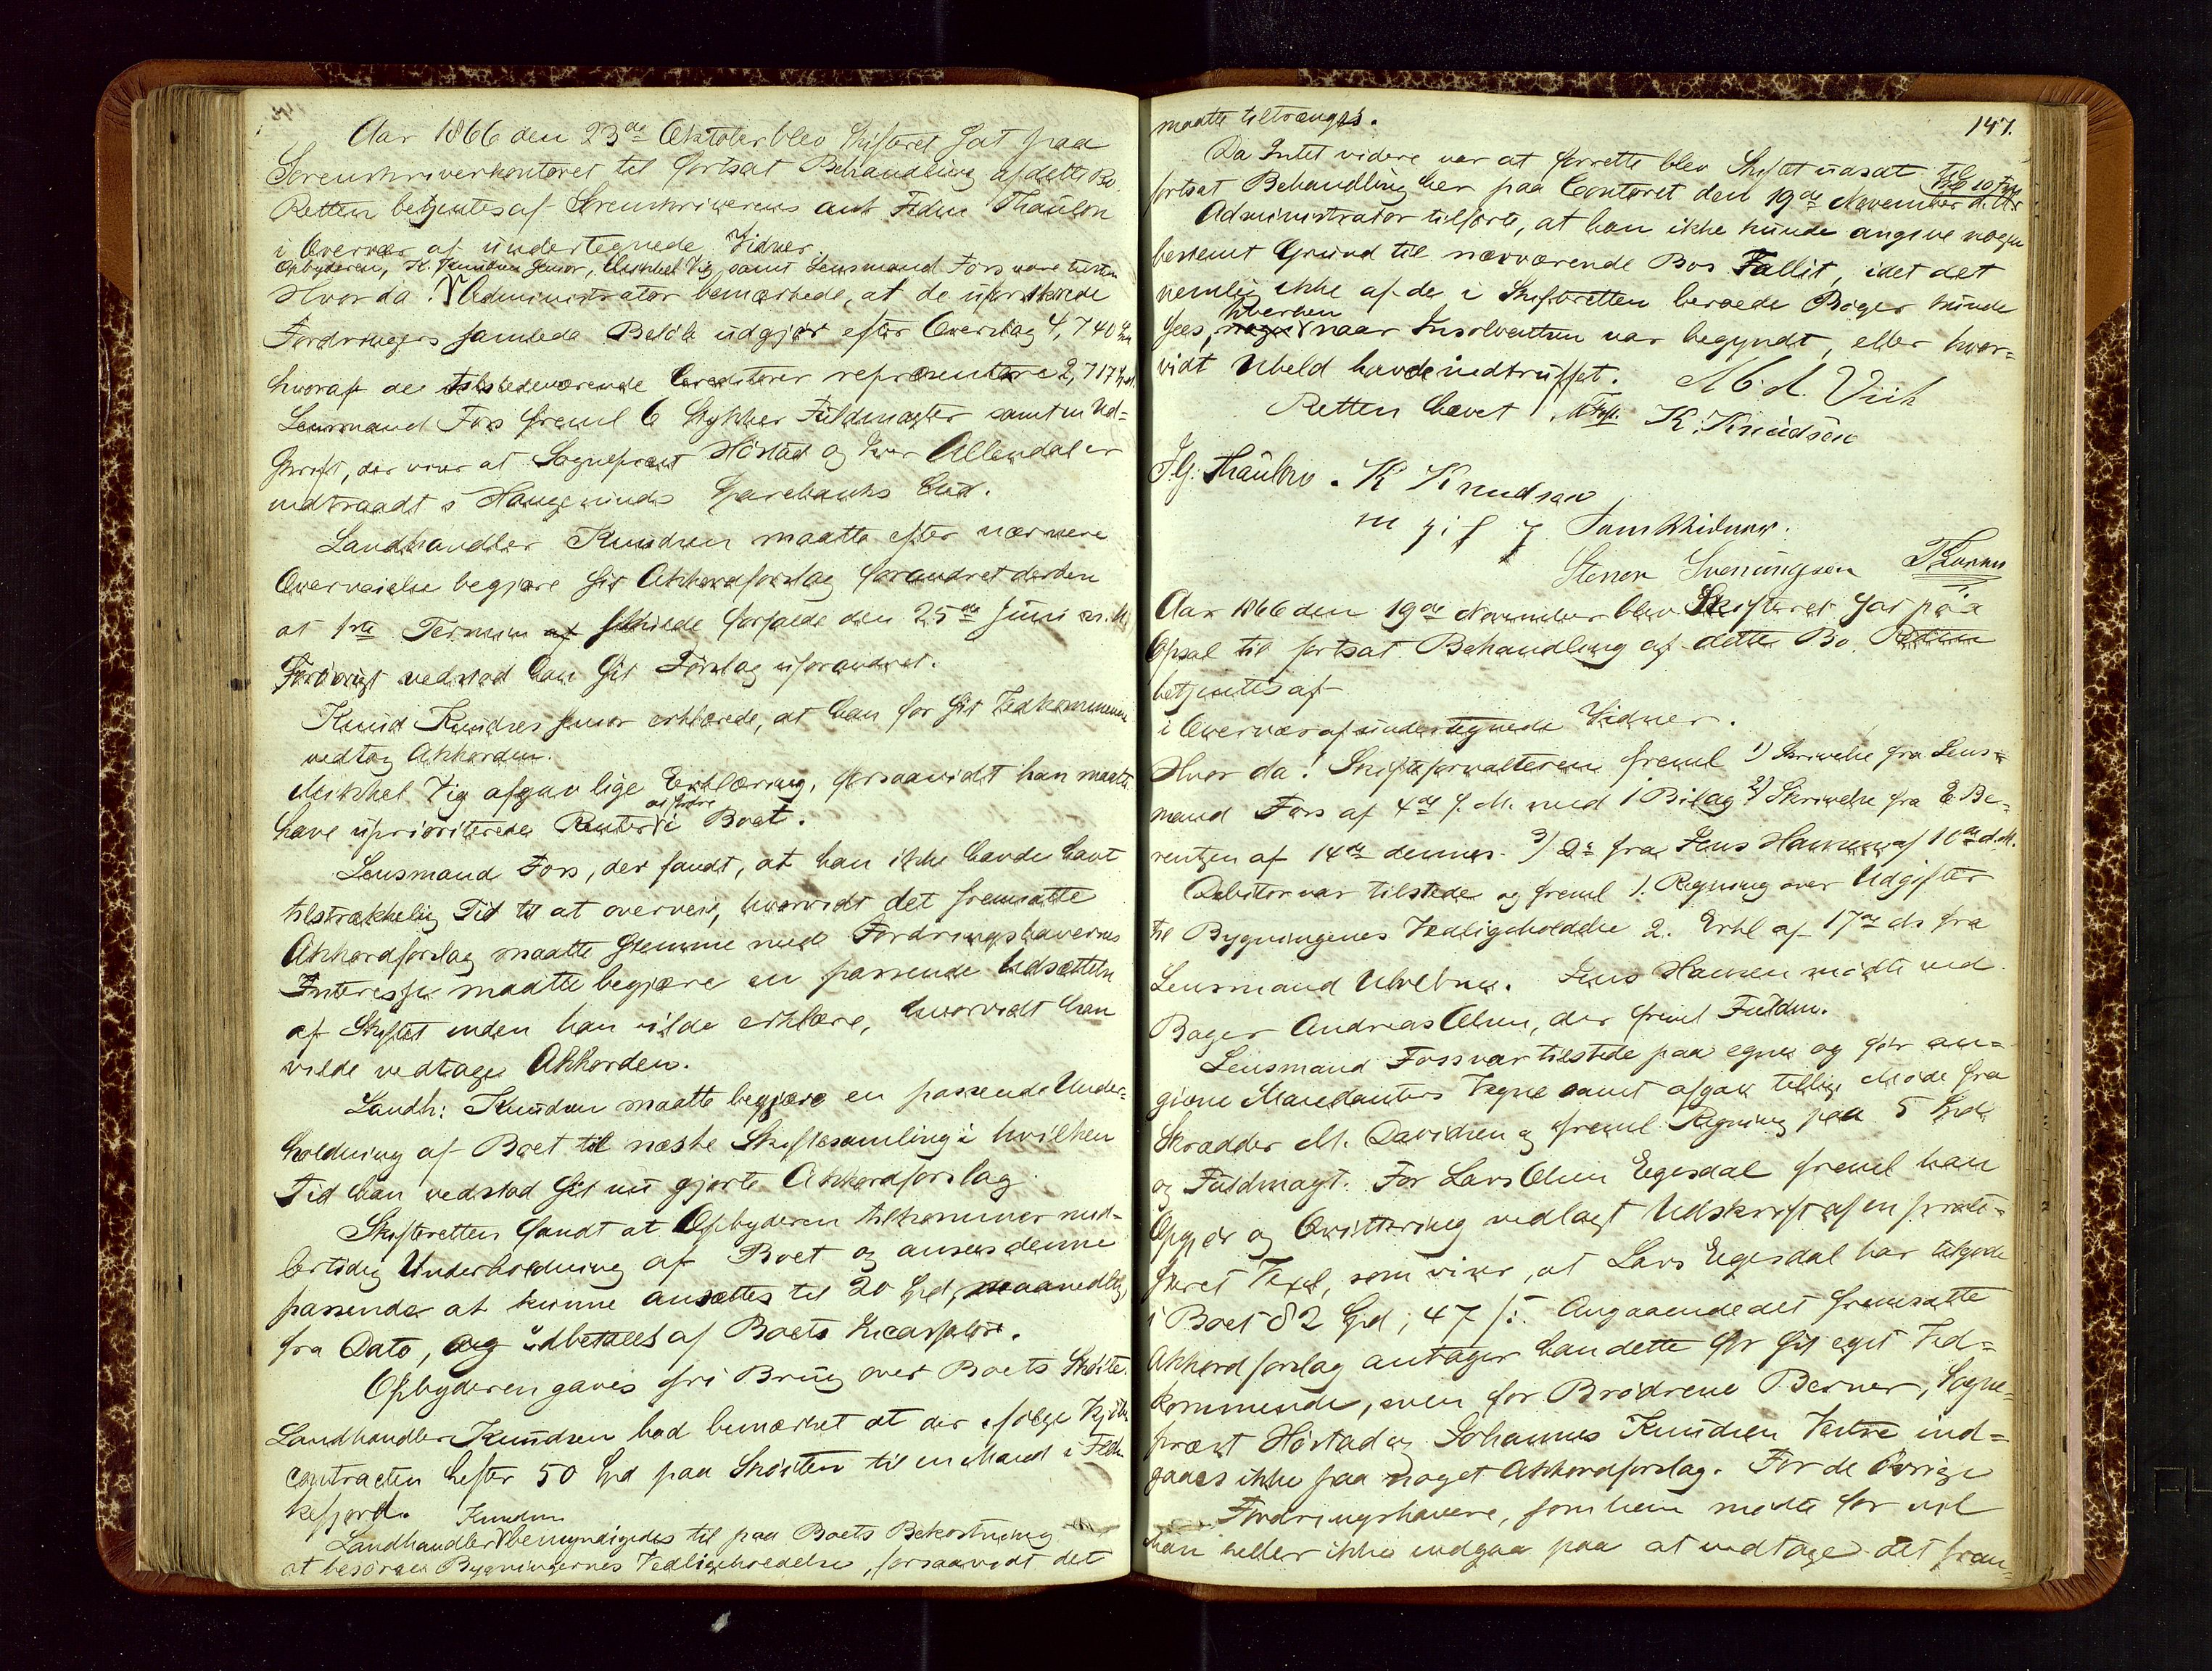 Aar 1866 den 23de Oktober blev Skifteret sat paa
Sorenskriverkontoret til fortsat Behandling af dette Bo.
Retten betjentes af Sorenskriverens Thaulow
i Overvær af undertegnede Vidner.
Opbyderen, K. Knudsen Junior, Mikkel Vig samt Lensmand Fors vare tilstede
Hvor da! Administrator bemærkede, at de uprioriterede
Fordringers samlede Beløb udgjør efter Overslag 4,740 Spd
hvoraf de tilstedeværende Creditorer repræsentere 2,717 Spd.
Lensmand Fors freml 6 Stykker Fuldmagter samt en Ud-
skrift, der viser at Sogneprest Hörstad og Iver Allendal er
indtraadt i Haugesunds Sparebanks Sted.
Landhandler Knudsen maatte efter nærmere
Overveielse begjære sit Akkordforslag forandret derhen
at 1ste Termin skulde forfalde den 25de Juni n. A.
Forövrigt vedstod han sit Forslag uforandret.
Knud Knudsen Junior erklærede, at han for sit Vedkommende
vedtog Akkorden.
Mikkel Vig afgav lige Erklæring, forsaavidt han maatte
at fordre
have uprioriterede Renter i Boet.
Lensmand Fors, der fandt, at han ikke havde havt
tilstrækkelig Tid til at overveie, hvorvidt det fremsatte
Akkordforslag maatte stemme med Fordringshavernes
Interesse maatte begjære en passende Udsættelse
af Skiftet inden han vilde erklære, hvorvidt han
vilde vedtage Akkorden.
Landh: Knudsen maatte begjære en passende Under-
holdning af Boet til næste Skiftesamling i hvilken
Tid han vedstod sit nu gjorte Akkordforslag.
Skifteretten fandt at Opbyderen tilkommer mid-
lertidig Underholdning af Boet og ansees denne
passende at kunne ansættes til 20 Spd, maanedlig,
fra Dato, og udbetales af Boets Incassator.
Opbyderen gaves fri Brug over Boets Skøite.
Landhandler Knudsen bad bemærket at der ifølge Kjöbe
contracten hefter 50 Spd paa Skøiten til en Mand i Flek-
kefjord.
Knudsen
Landhandler bemyndigedes til paa Boets Bekostning
at besörge Bygningernes Vedligeholdelse, forsaavidt det
147.
maatte tiltrænges.
Da Intet videre var at forrette blev Skiftet udsat til
fortsat Behandling her paa Contoret den 19de November d. A.
Administrator tilførte, at han ikke kunde angive nogen
bestemt Grund til nærværende Bos Fallit, idet det
nemlig ikke af de i Skifteretten beroede Böger kunde
hverken
sees, naar Insolventsen var begyndt, eller hvor-
vidt Uheld havde indtruffet. M. d. Vich
Retten hævet K. Knudsen
J.G. Thaulow. K Knudsen
m p i f p Som Vidner:
Svenningsen
Aar 1866 den 19de November blev Skifteret sat paa
Opsal til fortsat Behandling af dette Bo. Retten
betjentes af
i Overvær af undertegnede Vidner.
Hvor da! Skifteforvalteren freml 1) Skrivelse fra Lens-
mand Fors af 4de d. M. med 1 Bilag 2) Skrivelse fra E. Be-
rentzen af 14de dennes. 3) Do fra Jens Hansen af 10de d.M.
Debitor var tilstede og freml 1. Regning over Udgifter
til Bygningenes Vedligeholdelse 2. Erkl af 17de ds fra
Lensmand. Jens Hansen mødte ved
Bager Andreas Olsen, der freml Fuldm.
Lensmand Fors var tilstede paa egne og før an-
givne Mandanters Vegne samt afgav tillige Møde fra
Skrædder M. Davidsen og freml Regning paa 5 Spd
og Fuldmagt. For Lars Olsen Egesdal freml han
Opgjør og Qvittering vedlagt Udskrift af en prote-
steret Vexl, som viser, at Lars Egesdal har tilgode
i Boet 82 Spd, 47 s. Angaaende det fremsatte
Akkordforslag antager han dette for sit eget Ved-
kommende, men for Brødrene Berner, Sogne-
prest Hörstad og Johannes Knudsen Vestre ind-
gaaes ikke paa noget Akkordforslag. For de övrige
Fordringshavere, som han mødte for vil
han heller ikke indgaa paa at vedtage det frem-